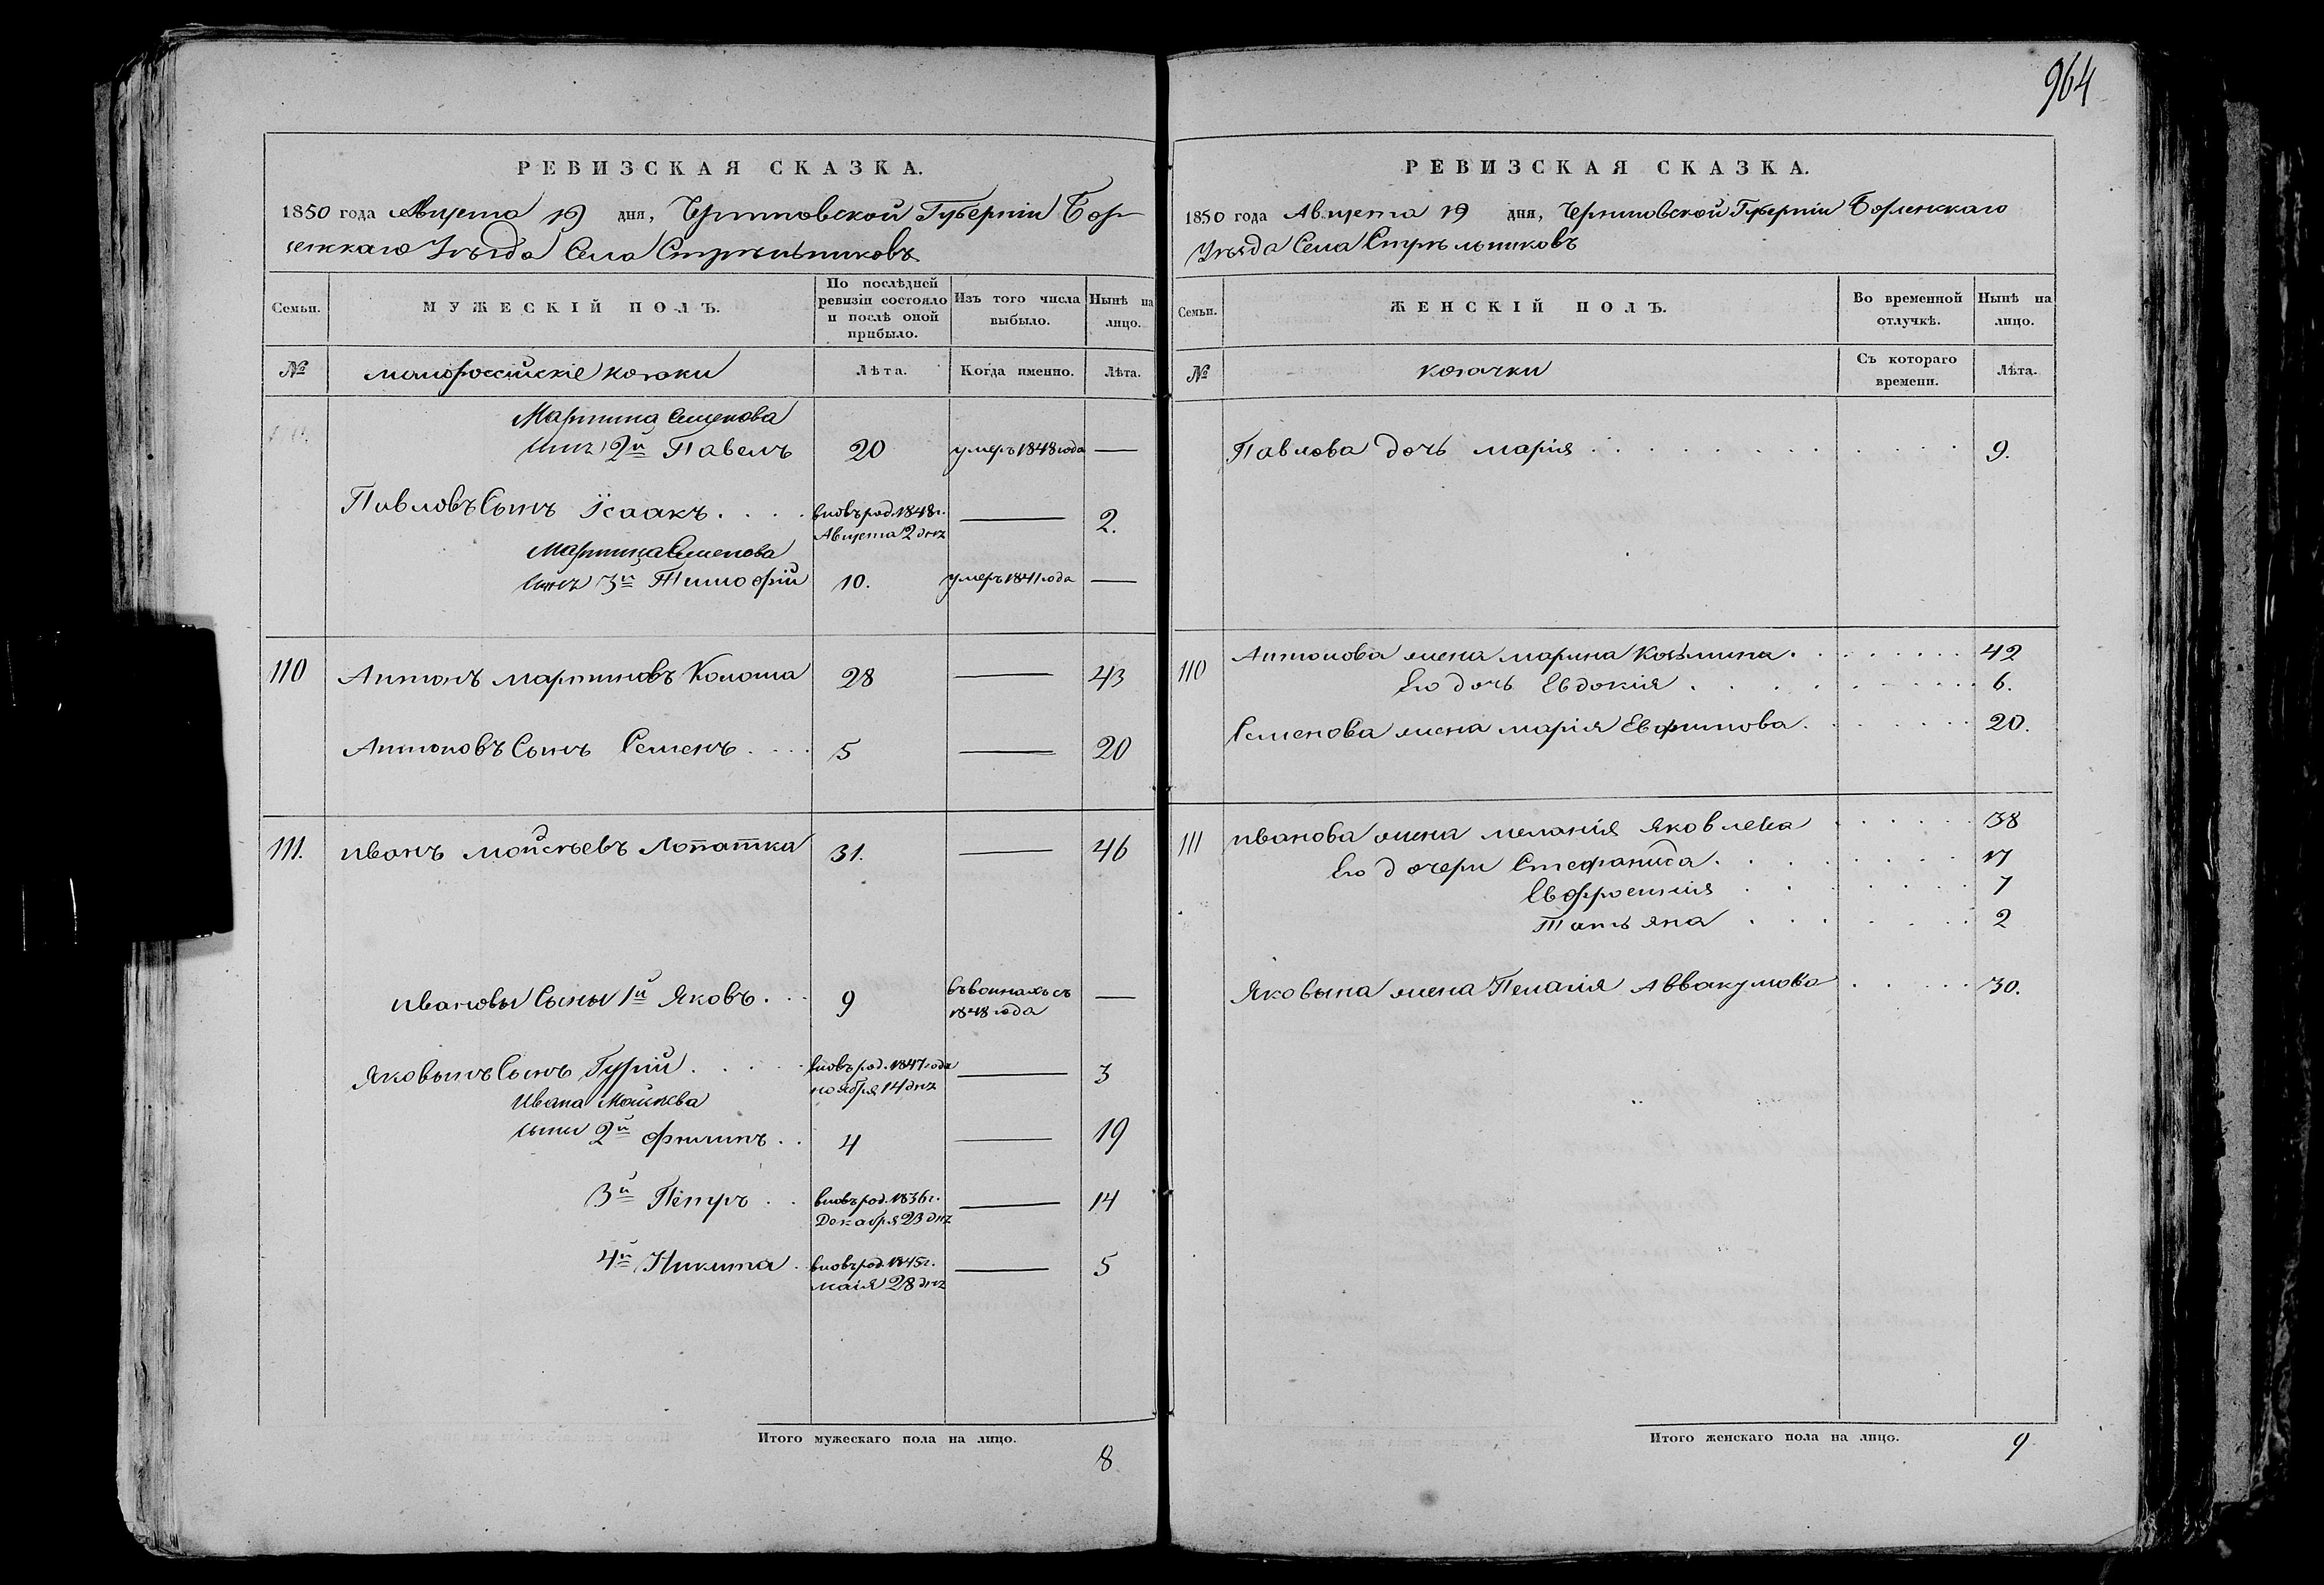 964
РЕВИЗСКАЯ СКАЗКА.
1850 года Августа 19 дня, Черниговской Губерніи Бор-
зенскаго Уѣзда Села Стрѣльниковъ
Семьи. МУЖЕСКІЙ ПОЛЪ. По послѣдней ревизіи состояло и послѣ оной прибыло. Изъ того числа выбыло. Нынѣ на лицо.
№ малороссійскіе козаки Лѣта. Когда именно. Лѣта.
Мартина Семенова
сынъ 2й Павелъ 20 умеръ 1848 года —
Павловъ Сынъ Ісаакъ . . . . вновь род. 1848 г. — 2.
Августа 2 дня
Мартина Семенова
сынъ 3й Тимофій 10. умеръ 1841 года —
110 Антонъ Мартиновъ Колоша 28 — 43
Антоновъ Сынъ Семенъ . . . . 5 — 20
111. Иванъ Мойсѣевъ Лопатка 31. — 46
Ивановы Сыны 1й Яковъ . . . 9 въ воинахъ съ —
1848 года
Яковынъ Сынъ Гурій . . . . . вновь род. 1847 года — 3
ноября 14 дня
Ивана Мойсѣева
сыны 2й Филипъ . . 4 — 19
3й Петръ . . вновь род. 1836 г. — 14
Декабря 23 дня
4й Никита . вновь род. 1845 г. — 5
маія 28 дня
Итого мужескаго пола на лицо.
8
РЕВИЗСКАЯ СКАЗКА.
1850 года Августа 19 дня, Черниговской Губерніи Борзенскаго
Уѣзда Села Стрѣльниковъ
Семьи. ЖЕНСКІЙ ПОЛЪ. Во временной отлучкѣ. Нынѣ на лицо.
№ козачки Съ котораго времени. Лѣта.
Павлова дочь Марія . . . . . . . . . . . 9.
110 Антонова жена Марина Козьмина . . . . . . . . 42
Его дочь Евдокія . . . . . . . . . . . 6.
Семенова жена Марія Евфимова . . . . . . . 20.
111 Иванова жена Меланія Яковлева . . . . . . 38
Его дочери Стефанида . . . . . . . . 17
Евфросинія . . . . . . . 7
Татьяна . . . . . . . 2
Яковына жена Пелагія Аввакумова . . . . . 30.
Итого женскаго пола на лицо. 9